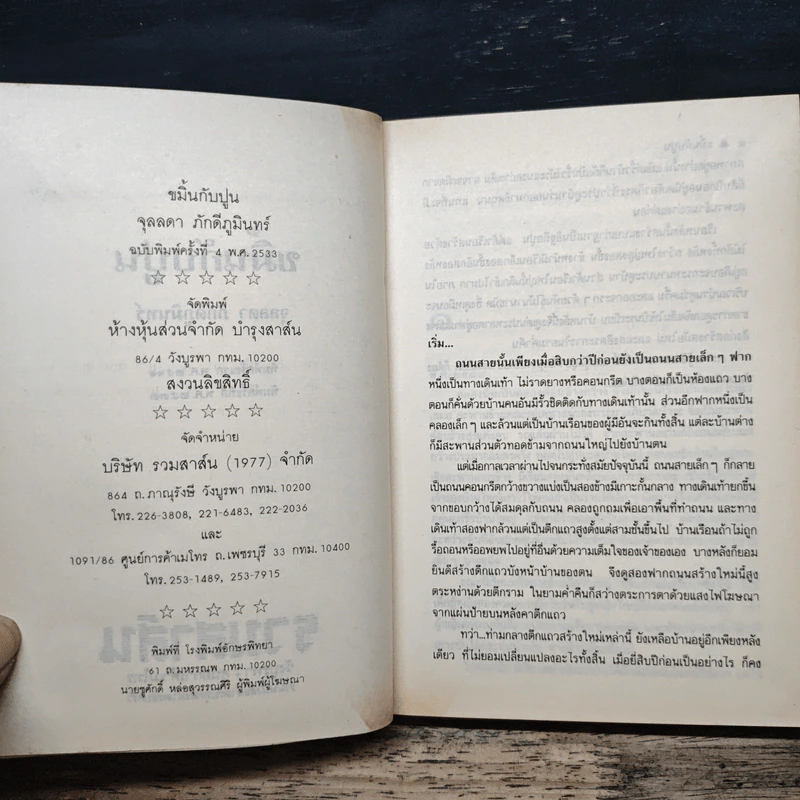 ขมิ้นกับปูน
จุลลดา ภักดีภูมินทร์
ฉบับพิมพ์ครั้งที่ 4 พ.ศ. 2533
☆ ☆ ☆ ☆ ☆
จัดพิมพ์
ห้างหุ้นส่วนจำกัด บำรุงสาส์น
86/4 วังบูรพา กทม. 10200
สงวนลิขสิทธิ์
☆ ☆ ☆ ☆ ☆
จัดจำหน่าย
บริษัท รวมสาส์น (1977) จำกัด
864 ถ.ภาณุรังษี วังบูรพา กทม. 10200
โทร. 226-3808, 221-6483, 222-2036
และ
1091/86 ศูนย์การค้าเมโทร ถ.เพชรบุรี 33 กทม. 10400
โทร. 253-1489, 253-7915
☆ ☆ ☆ ☆ ☆
พิมพ์ที่ โรงพิมพ์อักษรพิทยา
61 ถ.มหรรณพ กทม. 10200
นายชูศักดิ์ หล่อสุวรรณศิริ ผู้พิมพ์ผู้โฆษณา
เริ่ม...
ถนนสายนั้นเพียงเมื่อสิบกว่าปีก่อนยังเป็นถนนสายเล็กๆ ฟาก
หนึ่งเป็นทางเดินเท้า ไม่ราดยางหรือคอนกรีต บางตอนก็เป็นห้องแถว บาง
ตอนก็คั่นด้วยบ้านคนอันมีรั้วชิดติดกับทางเดินเท้านั้น ส่วนอีกฟากหนึ่งเป็น
คลองเล็กๆ และล้วนแต่เป็นบ้านเรือนของผู้มีอันจะกินทั้งสิ้น แต่ละบ้านต่าง
ก็มีสะพานส่วนตัวทอดข้ามจากถนนใหญ่ไปยังบ้านตน
แต่เมื่อกาลเวลาผ่านไปจนกระทั่งสมัยปัจจุบันนี้ ถนนสายเล็กๆ ก็กลาย
เป็นถนนคอนกรีตกว้างขวางแบ่งเป็นสองข้างมีเกาะกั้นกลาง ทางเดินเท้ายกขึ้น
จากขอบกว้างได้สมดุลกับถนน คลองถูกถมเพื่อเอาพื้นที่ทำถนน และทาง
เดินเท้าสองฟากล้วนแต่เป็นตึกแถวสูงตั้งแต่สามชั้นขึ้นไป บ้านเรือนถ้าไม่ถูก
รื้อถอนหรืออพยพไปอยู่ที่อื่นด้วยความเต็มใจของเจ้าของเอง บางหลังก็ยอม
ยินดีสร้างตึกแถวบังหน้าบ้านของตน จึงดูสองฟากถนนสร้างใหม่นี้สูง
ตระหง่านด้วยตึกราม ในยามค่ำคืนก็สว่างตระการตาด้วยแสงไฟโฆษณา
จากแผ่นป้ายบนหลังคาตึกแถว
ทว่า..ท่ามกลางตึกแถวสร้างใหม่เหล่านี้ ยังเหลือบ้านอยู่อีกเพียงหลัง
เดียว ที่ไม่ยอมเปลี่ยนแปลงอะไรทั้งสิ้น เมื่อยี่สิบปีก่อนเป็นอย่างไร ก็คง